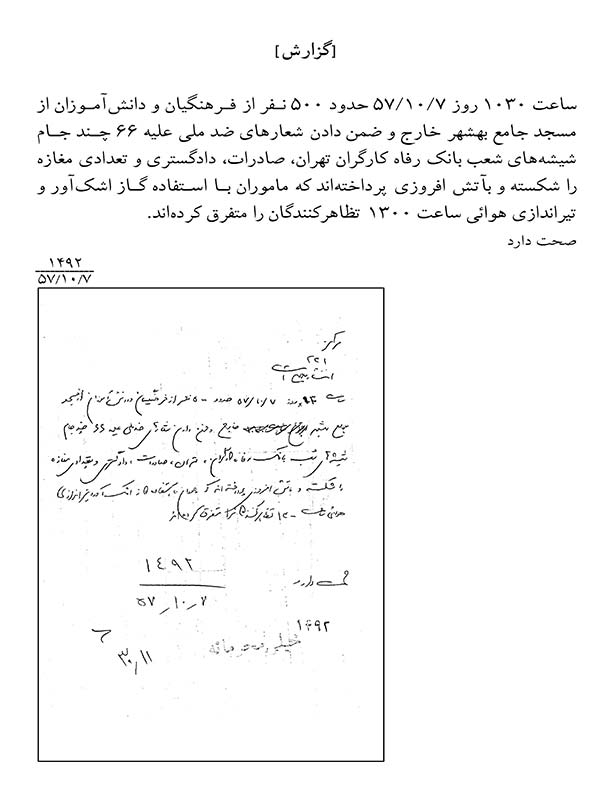 [گزارش]
ساعت ۱۰۳۰ روز ۵۷/۱۰/۷ حدود ۵۰۰ نفر از فرهنگیان و دانش‌آموزان از
مسجد جامع بهشهر خارج و ضمن دادن شعارهای ضد ملی علیه ۶۶ چند جام
شیشه‌های شعب بانک رفاه کارگران تهران، صادرات، دادگستری و تعدادی مغازه
را شکسته و بآتش افروزی پرداخته‌اند که ماموران با استفاده گاز اشک‌آور و
تیراندازی هوائی ساعت ۱۳۰۰ تظاهرکنندگان را متفرق کرده‌اند.
صحت دارد
۱۴۹۲
۵۷/۱۰/۷
مرکز
۲۲۱
روز ۵۷/۱۰/۷ حدود ۵۰۰ نفر از فرهنگیان و دانش‌آموزان از مسجد
جامع بهشهر خارج و ضمن دادن شعارهای ضد ملی علیه ۶۶ چند جام
شیشه‌های شعب بانک رفاه کارگران، تهران، صادرات، دادگستری و تعدادی مغازه
را شکسته و بآتش افروزی پرداخته‌اند که ماموران با استفاده از اشک‌آور و تیراندازی
هوائی ساعت ۱۳۰۰ تظاهرکنندگان را متفرق کرده‌اند
صحت دارد
۱۴۹۲
۵۷/۱۰/۷
۱۴۹۲
خیلی محرمانه
۳۰/۱۱